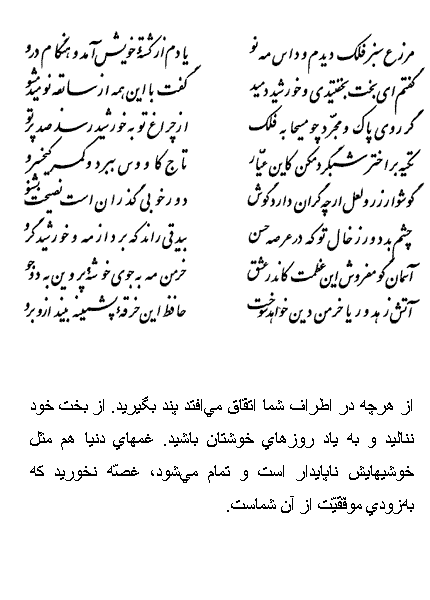 مزرع سبز فلک دیدم و داس مه نو یادم از کشتهٔ خویش آمد و هنگام درو
گفتم ای بخت بخفتیدی و خورشید دمید گفت با این همه از سابقه نومید مشو
گر روی پاک و مجرّد چو مسیحا به فلک از چراغ تو به خورشید رسد صد پرتو
تکیه بر اختر شبگرد مکن کاین عیّار تاج کاووس ببرد و کمر کیخسرو
گوشوار زر و لعل ارچه گران دارد گوش دور خوبی گذران است نصیحت بشنو
چشم بد دور ز خال تو که در عرصه حسن بیدقی راند که برد از مه و خورشید گرو
آسمان گو مفروش این عظمت کاندر عشق خرمن مه به جوی خوشهٔ پروین به دو جو
آتش زهد و ریا خرمن دین خواهد سوخت حافظ این خرقهٔ پشمینه بینداز و برو
از هرچه در اطراف شما اتفاق مي‌افتد پند بگيريد. از بخت خود
ننالید و به ياد روزهاي خوشتان باشيد. غمهاي دنيا هم مثل
خوشيهايش ناپايدار است و تمام مي‌شود، غصّه نخوريد كه
به‌زودي موفقيّت از آن شماست.